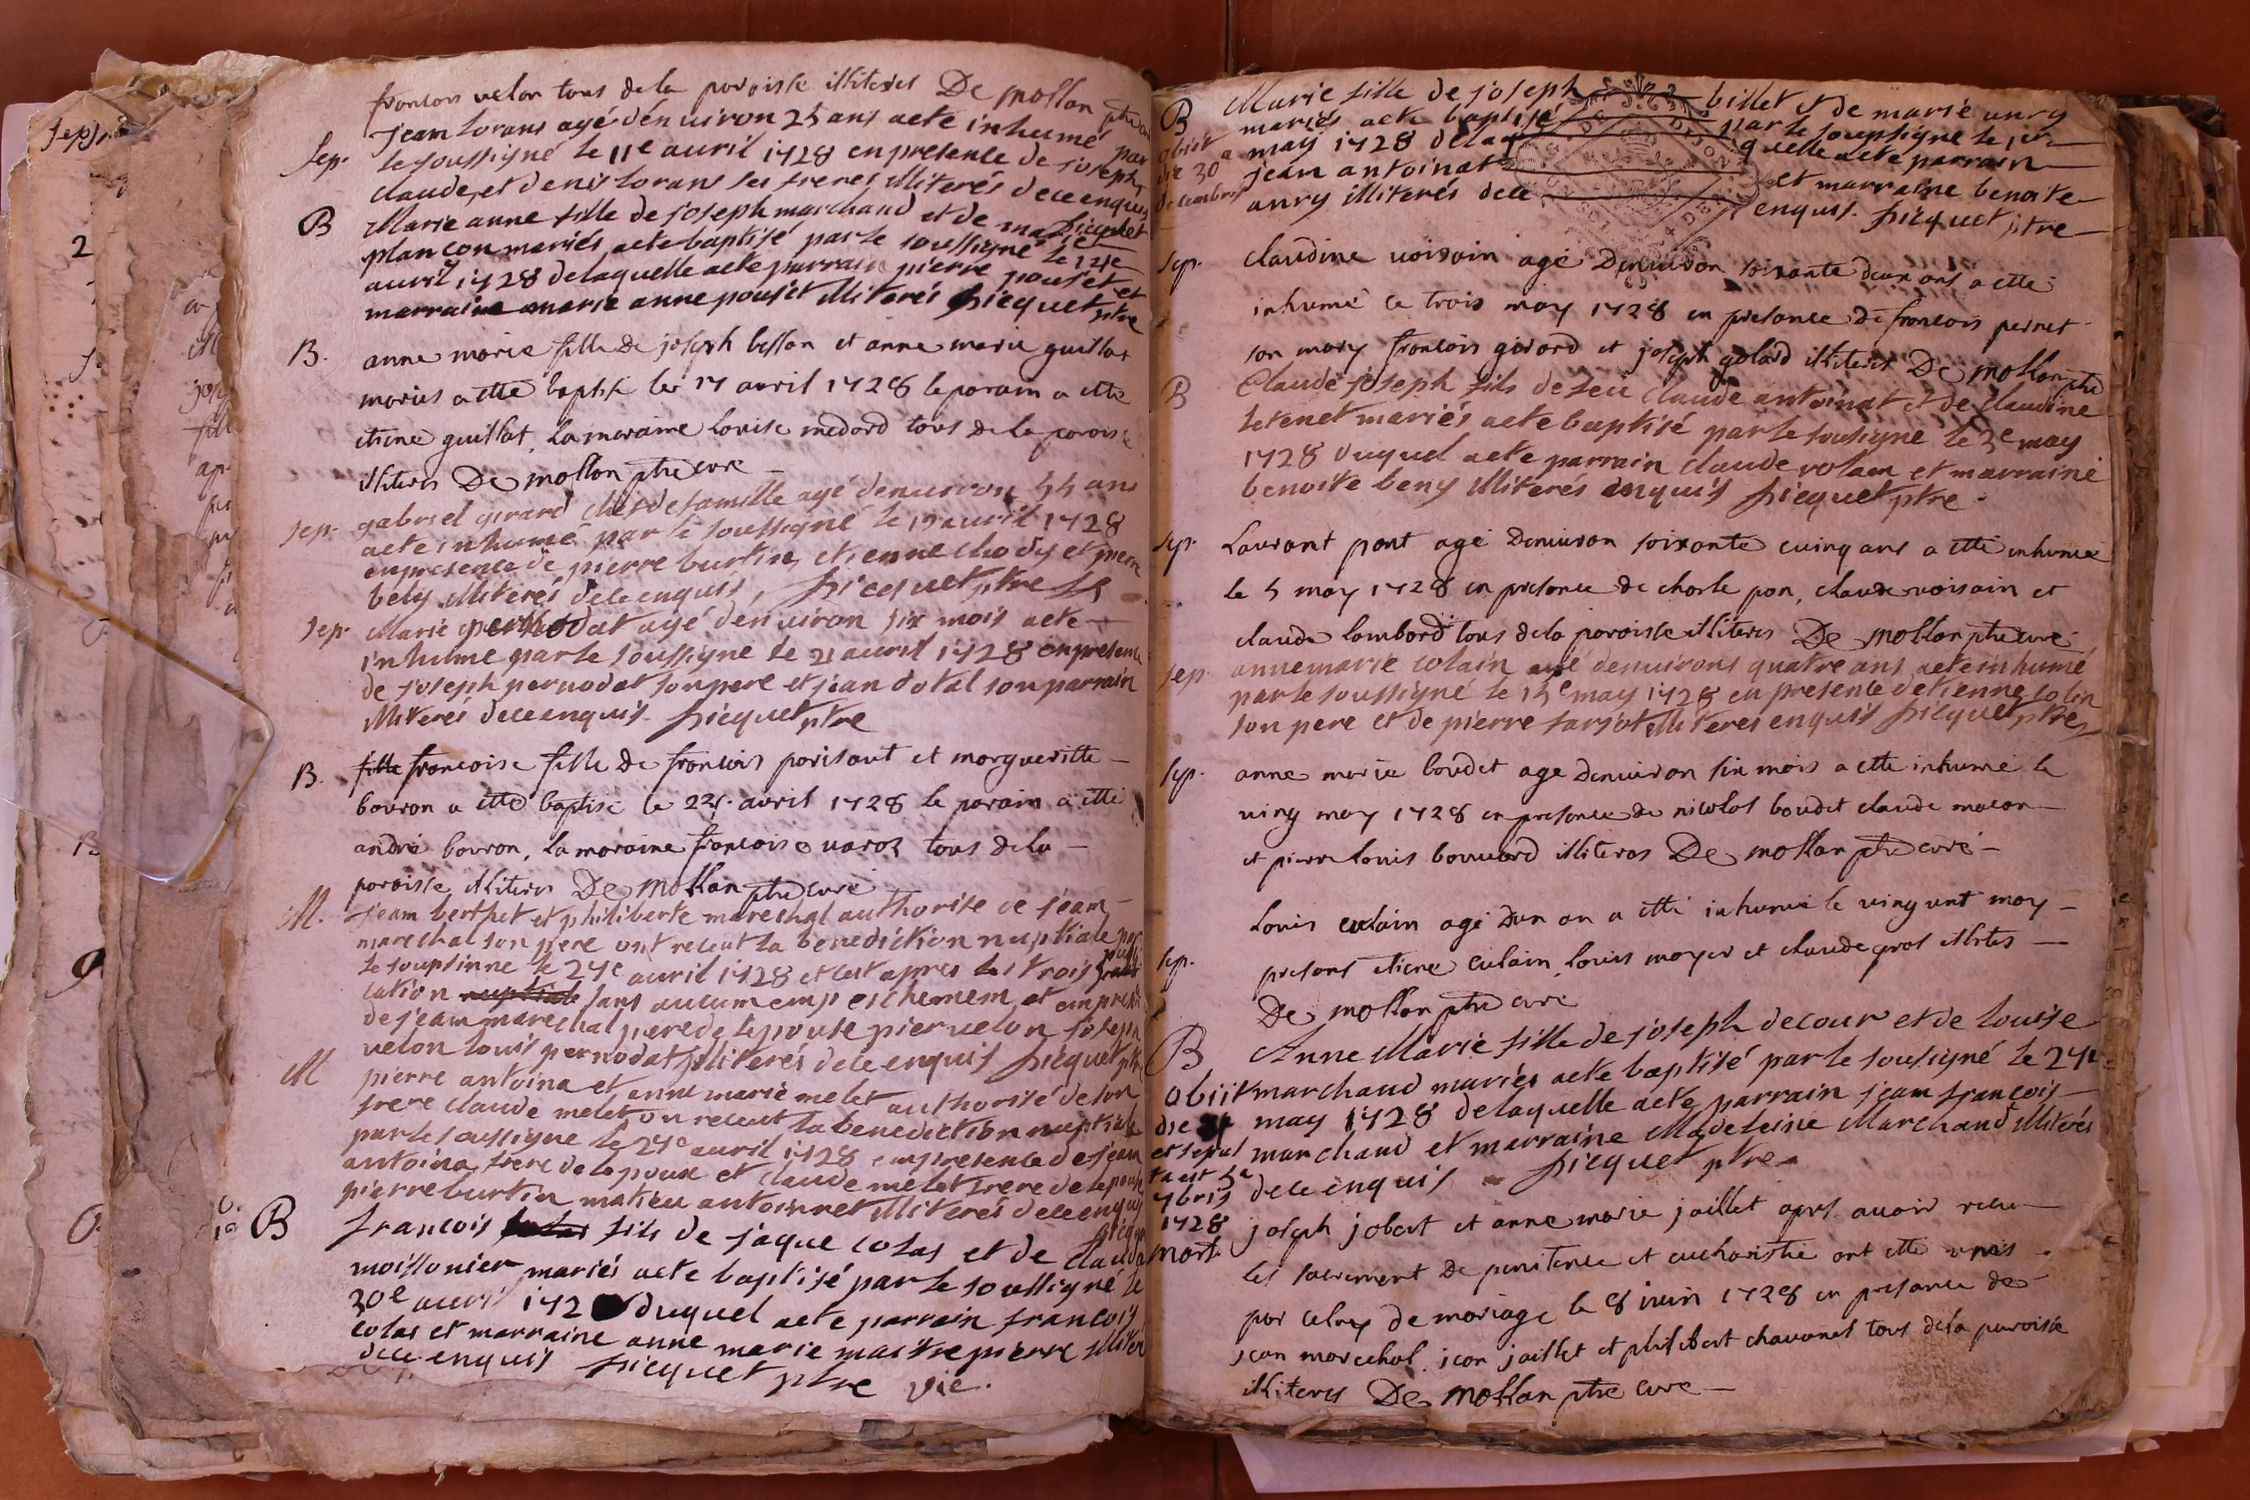 francois velon tous de la paroisse illiteres De mollan ptre cu
Sep. jean lorans agé d'environ 25 ans acte inhumé par
le soussigné le 11e avril 1728 en presence de joseph
claude, et denis lorans ses freres illiterés de ce enquis
B Marie anne fille de joseph marchand et de marie
plancon mariés acte baptisé par le soussigné le
avril 1728 de laquelle acte parrain pierre pouset et
marraine marie anne pouset illiterés picquet ptre
B. anne marie fille de joseph besson et anne marie guillot
mariés a etté baptisé le 17 avril 1728 le parain a etté
etiene guillot, la maraine Louise medard tous de la paroisse
illiteres De mollan ptre cure
sep. gabriel girard chef de famille agé denviron 55 ans
acte inhumé par le soussigné le 19 avril 1728
en presence de pierre burtin, etienne et pierre
bely illiterés de ce enquis, picquet ptre
sep. Marie agé denviron six mois acte
inhumé par le soussigné le 21 avril 1728 en presence
de joseph pernodat son pere et jean dotal son parrain
illiterés de ce enquis. picquet ptre
B. fille francoise fille de francois parisaut et margueritte
bouron a etté baptisé le avril 1728 le parain a etté
andré bouron, la maraine francoise varoz tous de la
paroisse illiteres De mollan ptre curé
M. jean berthet et philiberte marechal authorisé de jean
marechal son pere ont receut la benediction nuptiale par
le soupsinne le 27e avril 1728 et cest apres les trois publi
cation nuptiale sans aucum empeschemem et em presence
de jeam marechal pere de lepouse pier velon joseph
velon louis pernodat illiterés de ce enquis picquet ptre
M pierre antoina et anne marie melet authorisé de son
frere claude melet on receut la benediction nuptiale
par le soussigne le 27e avril 1728 en presence de jean
antoina frere de lepoux et claude melet frere de lepouse
pierre burtin matieu antoinnet illiterés de ce enquis
picquet
B francois colas fils de jaque colas et de claude
moissonier mariés acte baptisé par le soussigné le
30e avril 172 duquel acte parrain francois
colas et marraine anne marie maitrepierre illiter
de ce enquis picquet ptre vic.
B Marie fille de joseph billet et de marie anry
mariés acte baptisé par le soupsigne le 1er
obiit may 1728 de laquelle acte parrain
die 30a jean antoinat et marraine benoite
decembris anry illiterés de ce enquis. picquet ptre
Sep. claudine voisain agé denviron soixante deux ans a etté
inhumé le trois may 1728 en presance de francois pernet
son mary francois girard et joseph golard illiteres De mollan ptre
B Claude joseph fils de feu claude antoinat et de claudine
tetenet mariés acte baptisé par le sousigne le 3e may
1728 duquel acte parrain claude rolam et marraine
benoite beny illiterés enquis picquet ptre.
Sep. Laurant pont agé denviron soixante cuinq ans a etté inhumé
le 5 may 1728 en presence de charle pon, claude voisain et
claude lombard tous de la paroisse illiteres De mollan ptre curé
sep. anne marie colain agé denvirons quatre ans acte inhumé
par le soussigné le 15e may 1728 en presence detienne colin
son pere et de pierre sarjot illiteres enquis picquet ptre
Sep. anne marie boudet age denviron six mois a etté inhumé le
ving may 1728 en presence de nicolas boudet claude macon
et pierre louis bouvard illiteres De mollan ptre curé
Louis culain agé dun an a etté inhumé le ving unt may
Sep. presant etiene culain, louis moyer et claude grot illites
De mollan ptre curé
B Anne Marie fille de joseph decour et de louise
obiit marchaud mariés acte baptisé par le sousigné le 27e
die may 1728 de laquelle acte parrain jeam francois
et sepul marchaud et marraine Madeleine Marchand illiterés
ta est 5a de ce enquis picquet ptre
7bris
1728 joseph jobert et anne marie jaillet apres avoir receu
mort. les sacrement de penitence et eucharistie ont etté unis
par celuy de mariage le 8 juin 1728 en presance de
jean marechal, jean jaillet et philibert chavanel tous de la paroisse
illiteres De mollan ptre cure